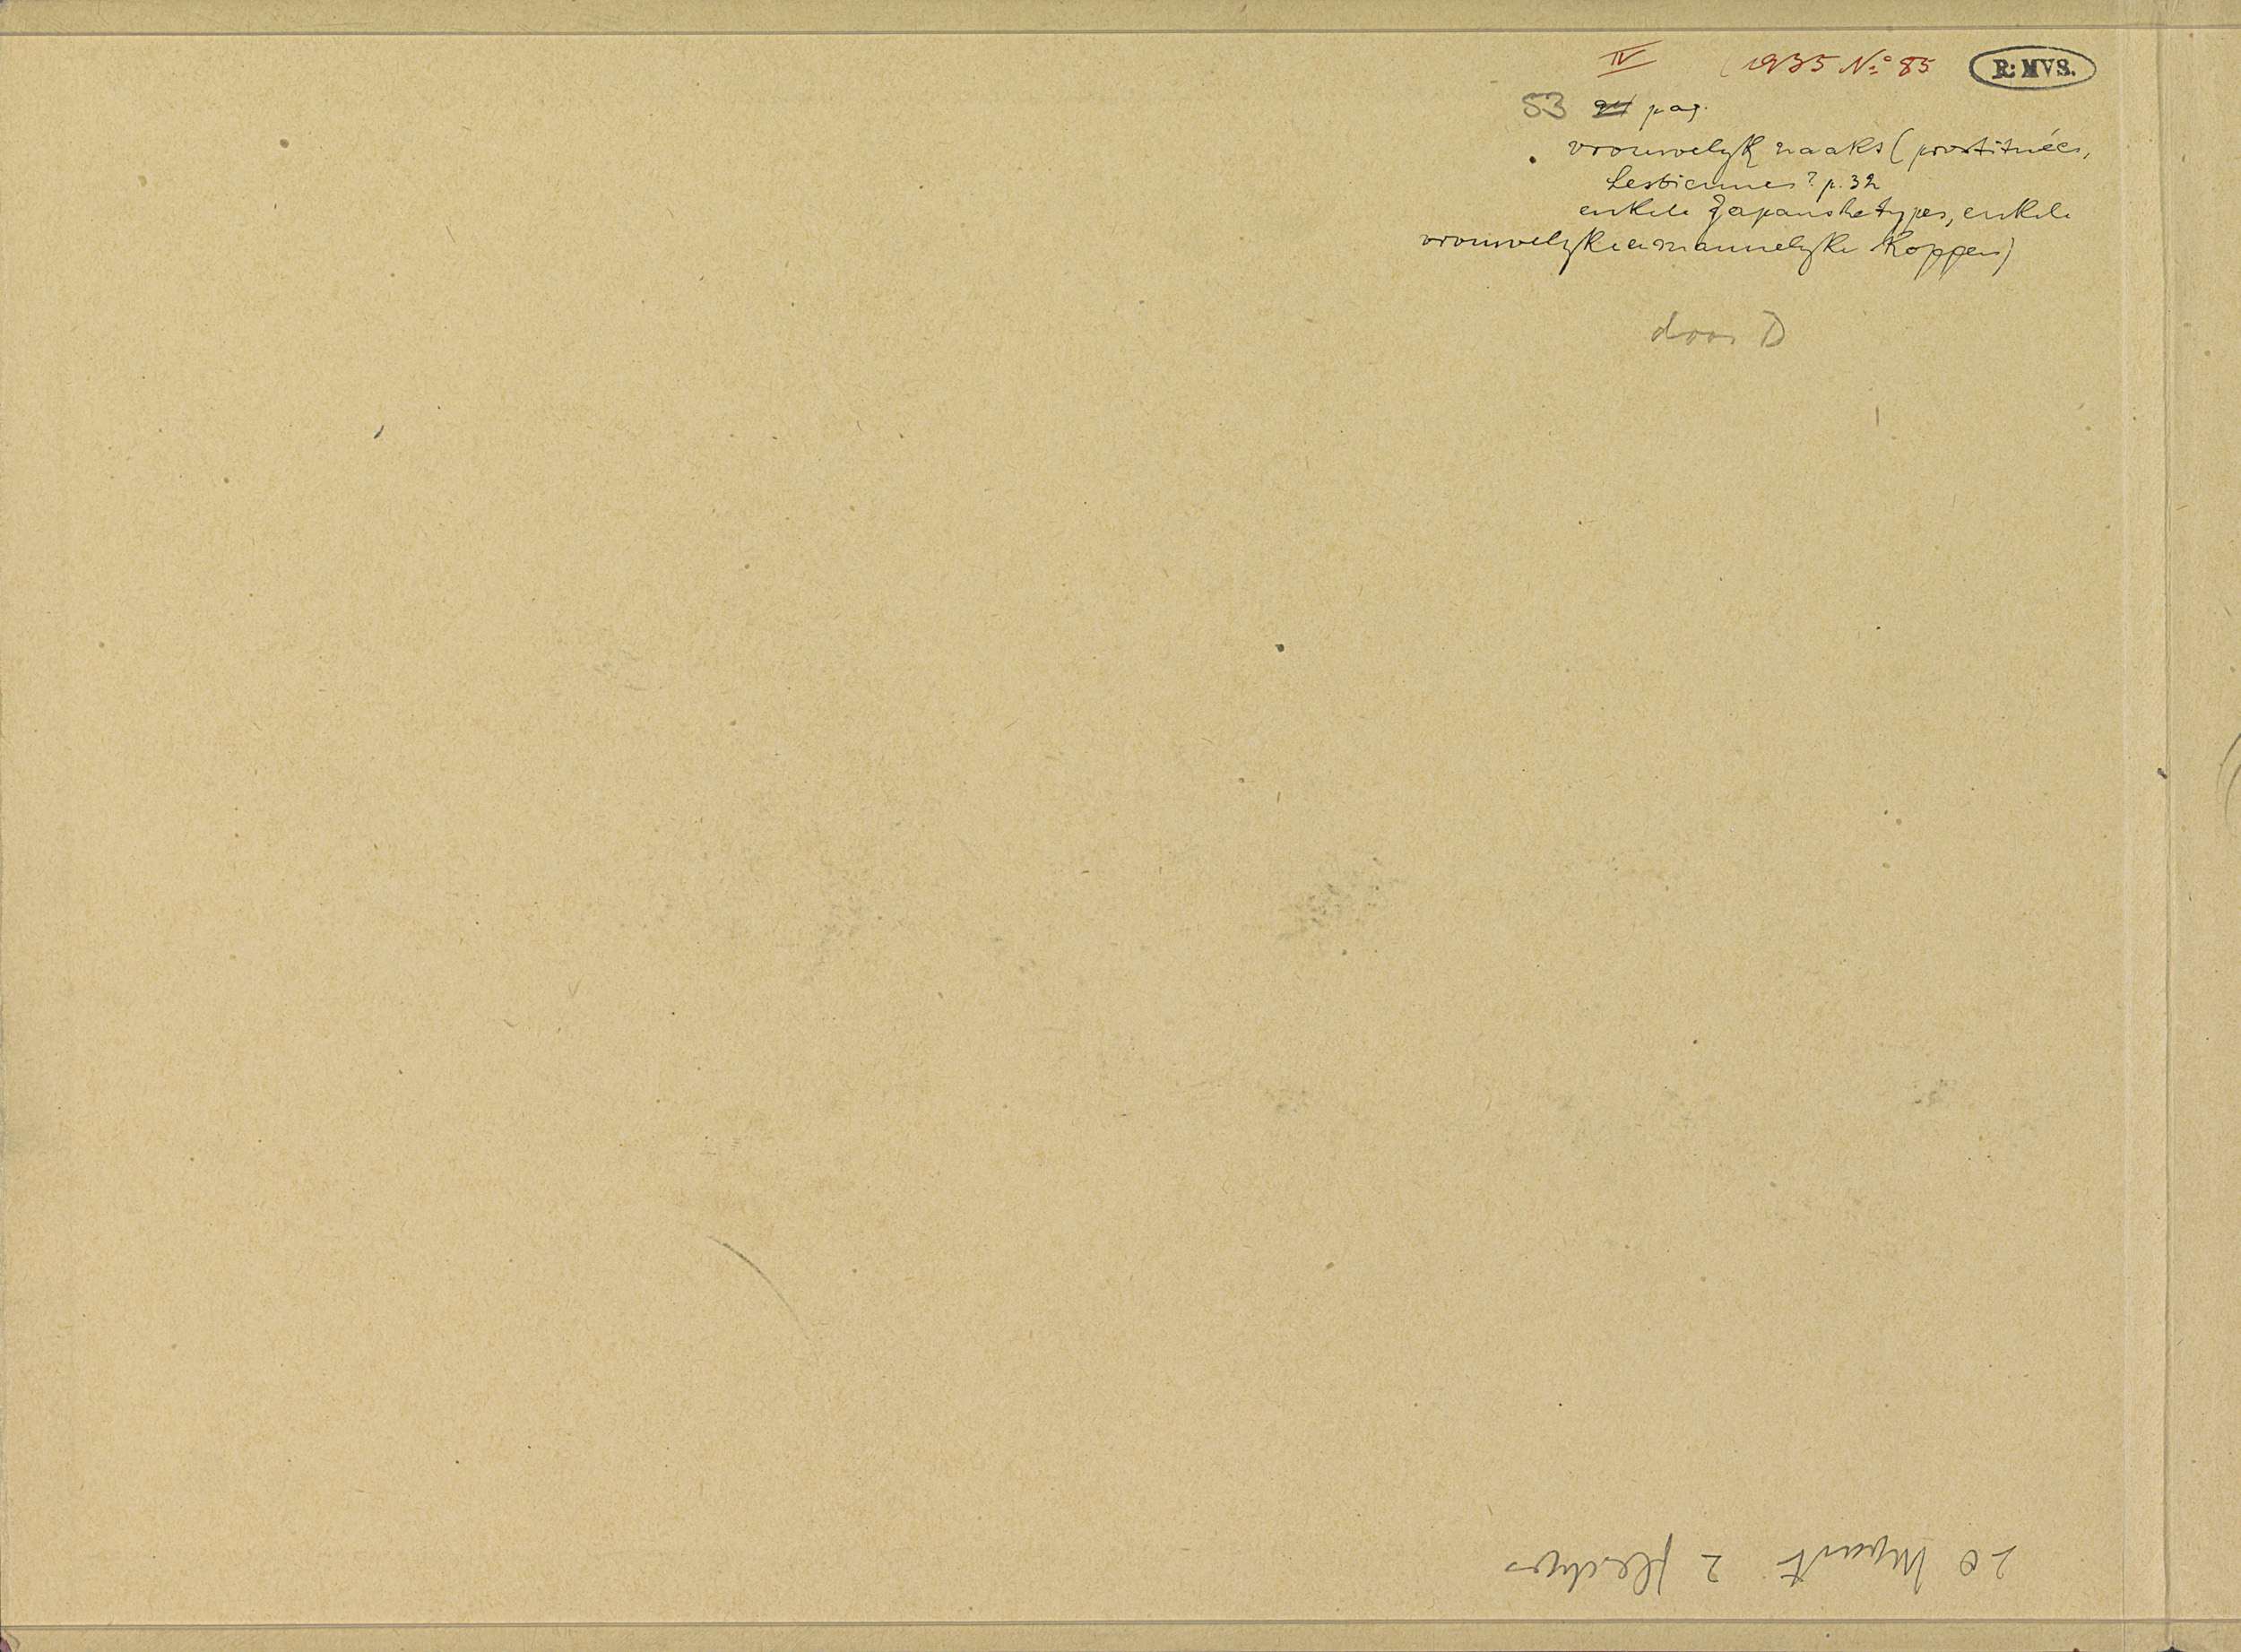 IV 1935 No: 85 R: MVS.
53 24 pag.
vrouwelyk naakt (prostituées,
Lesbiennes? p. 32
enkele Japansche types, enkele
vrouwelyke en mannelyke Koppen)
doos D
20 Maart 2 fleschjes